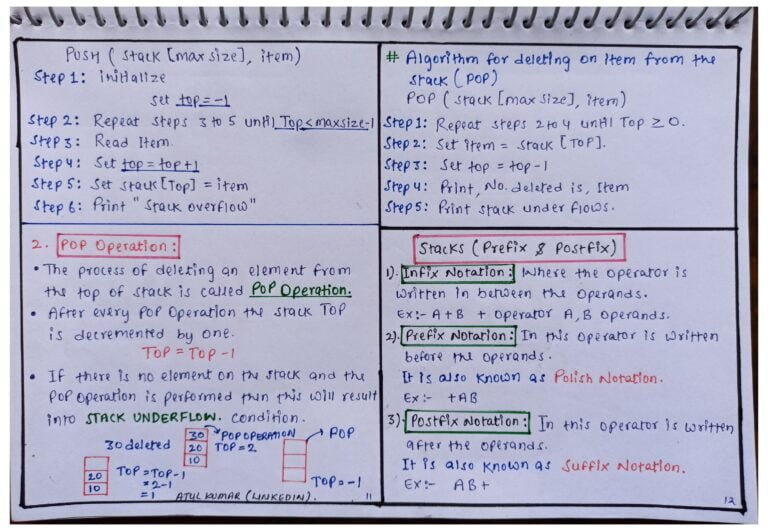 PUSH ( stack [max size], item)
Step 1: initialize
set top = -1
Step 2: Repeat steps 3 to 5 until Top<maxsize-1
Step 3: Read Item.
Step 4: Set top = top+1
Step 5: Set stack [Top] = item
Step 6: Print " stack overflow"
2. POP Operation:
• The process of deleting an element from
the top of stack is called POP Operation.
• After every POP Operation the stack TOP
is decremented by one.
TOP = TOP -1
• If there is no element on the stack and the
POP Operation is performed then this will result
into STACK UNDERFLOW. condition.
30 deleted
30
20
10
POP OPERATION
TOP = 2
POP
20
10
TOP = TOP-1
= 2-1
= 1
TOP = -1
ATUL KUMAR (LINKEDIN).
11
# Algorithm for deleting on item from the
stack ( POP)
POP ( stack [max size], item)
Step 1: Repeat steps 2 to 4 until Top ≥ 0.
Step 2: Set item = stack [TOP].
Step 3: Set top = top-1
Step 4: Print, No. deleted is, Item
Step 5: Print stack under flows.
Stacks ( Prefix & Postfix)
1). Infix Notation: Where the operator is
written in between the operands.
Ex:- A+B + operator A, B operands.
2). Prefix Notation: In this operator is written
before the operands.
It is also known as Polish Notation.
Ex:- +AB
3). Postfix Notation: In this operator is written
after the operands.
It is also known as Suffix Notation.
Ex:- AB+
12